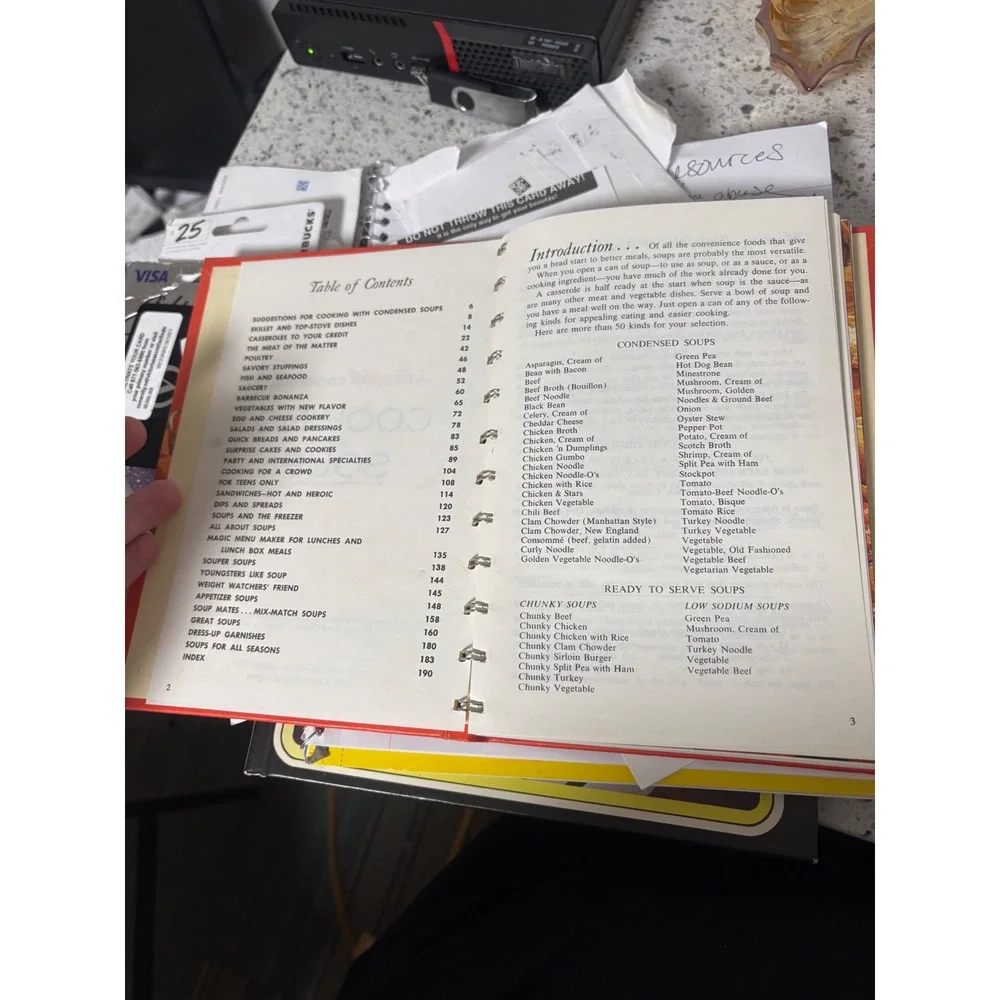 25
VISA
STARBUCKS
DO NOT THROW THIS CARD AWAY!
It is the only way to get your benefits!
Table of Contents
SUGGESTIONS FOR COOKING WITH CONDENSED SOUPS 6
SKILLET AND TOP-STOVE DISHES 8
CASSEROLES TO YOUR CREDIT 14
THE MEAT OF THE MATTER 22
POULTRY 42
SAVORY STUFFINGS 46
FISH AND SEAFOOD 48
SAUCERY 52
BARBECUE BONANZA 60
VEGETABLES WITH NEW FLAVOR 65
EGG AND CHEESE COOKERY 72
SALADS AND SALAD DRESSINGS 78
QUICK BREADS AND PANCAKES 83
SURPRISE CAKES AND COOKIES 85
PARTY AND INTERNATIONAL SPECIALTIES 89
COOKING FOR A CROWD 104
FOR TEENS ONLY 108
SANDWICHES—HOT AND HEROIC 114
DIPS AND SPREADS 120
SOUPS AND THE FREEZER 123
ALL ABOUT SOUPS 127
MAGIC MENU MAKER FOR LUNCHES AND
LUNCH BOX MEALS 135
SOUPER SOUPS 138
YOUNGSTERS LIKE SOUP 144
WEIGHT WATCHERS' FRIEND 145
APPETIZER SOUPS 148
SOUP MATES . . . MIX-MATCH SOUPS 158
GREAT SOUPS 160
DRESS-UP GARNISHES 180
SOUPS FOR ALL SEASONS 183
INDEX 190
2
Introduction . . . Of all the convenience foods that give
you a head start to better meals, soups are probably the most versatile.
When you open a can of soup—to use as soup, or as a sauce, or as a
cooking ingredient—you have much of the work already done for you.
A casserole is half ready at the start when soup is the sauce—as
are many other meat and vegetable dishes. Serve a bowl of soup and
you have a meal well on the way. Just open a can of any of the follow-
ing kinds for appealing eating and easier cooking.
Here are more than 50 kinds for your selection.
CONDENSED SOUPS
Asparagus, Cream of
Bean with Bacon
Beef
Beef Broth (Bouillon)
Beef Noodle
Black Bean
Celery, Cream of
Cheddar Cheese
Chicken Broth
Chicken, Cream of
Chicken 'n Dumplings
Chicken Gumbo
Chicken Noodle
Chicken Noodle-O's
Chicken with Rice
Chicken & Stars
Chicken Vegetable
Chili Beef
Clam Chowder (Manhattan Style)
Clam Chowder, New England
Consommé (beef, gelatin added)
Curly Noodle
Golden Vegetable Noodle-O's
Green Pea
Hot Dog Bean
Minestrone
Mushroom, Cream of
Mushroom, Golden
Noodles & Ground Beef
Onion
Oyster Stew
Pepper Pot
Potato, Cream of
Scotch Broth
Shrimp, Cream of
Split Pea with Ham
Stockpot
Tomato
Tomato-Beef Noodle-O's
Tomato, Bisque
Tomato Rice
Turkey Noodle
Turkey Vegetable
Vegetable
Vegetable, Old Fashioned
Vegetable Beef
Vegetarian Vegetable
READY TO SERVE SOUPS
CHUNKY SOUPS
Chunky Beef
Chunky Chicken
Chunky Chicken with Rice
Chunky Clam Chowder
Chunky Sirloin Burger
Chunky Split Pea with Ham
Chunky Turkey
Chunky Vegetable
LOW SODIUM SOUPS
Green Pea
Mushroom, Cream of
Tomato
Turkey Noodle
Vegetable
Vegetable Beef
3